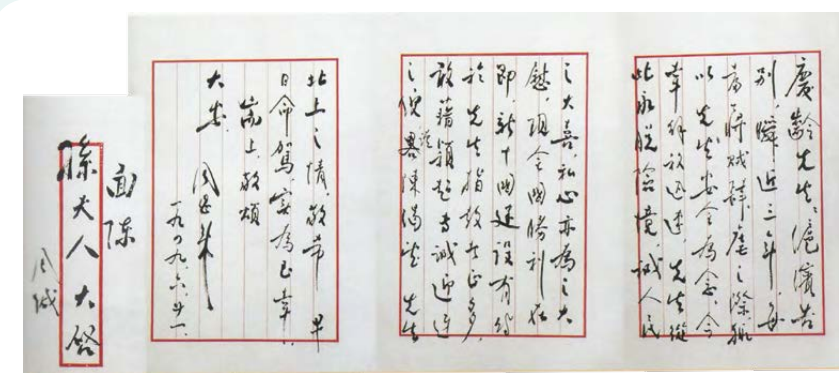 慶齡先生：滬濱告
別，瞬近三年，每
當蔣賊肆虐之際，輒
以先生安全為念。今
幸解放迅速，先生從
此永脱險境，誠人民
之大喜，私心亦為之大
慰。現全國勝利在
即，新中國建設有待
於先生指教者正多，
敢藉穎超專誠迎迓
之便，謹陳渴望先生
北上之情，敬希早
日命駕，實為至幸。
耑上，敬頌
大安
周恩来
一九四九、六、廿一、
面陈
孫夫人大啓
周緘